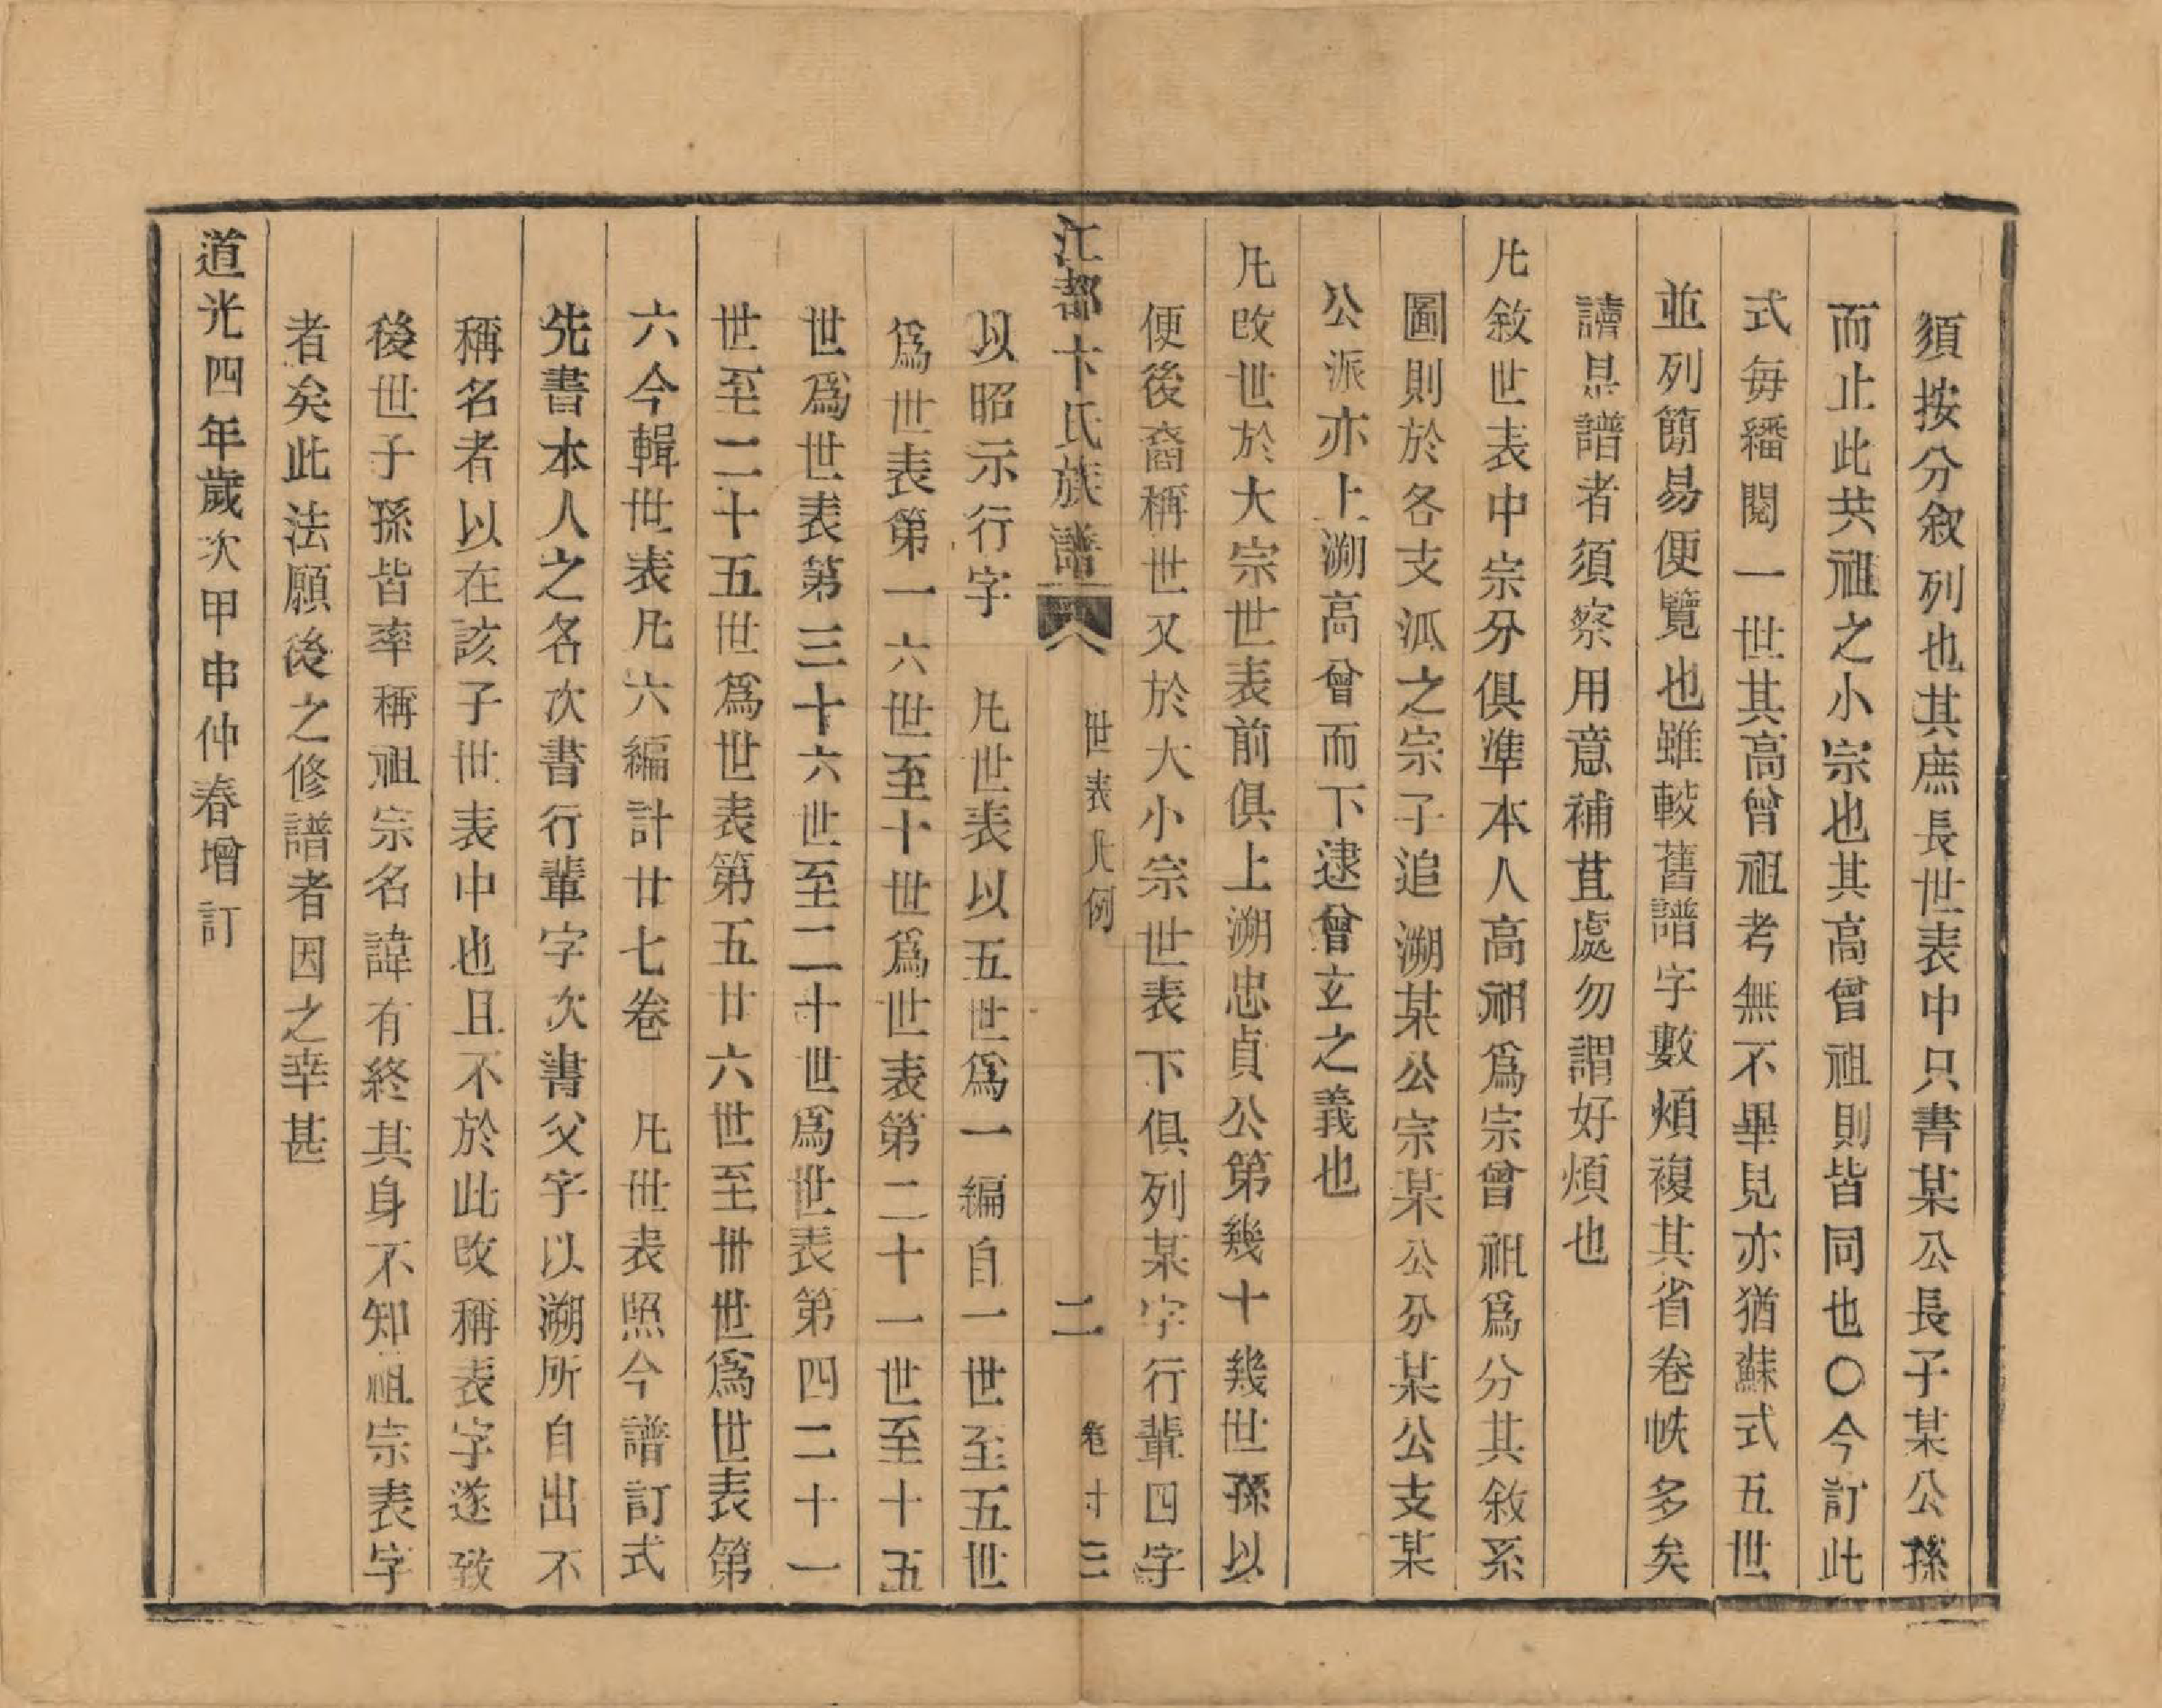 須按分叙列也其庶長世表中只書某公長子某公孫
而止此共祖之小宗也其高曾祖則皆同也〇今訂此
式每繙閱一世其高曾祖考無不畢見亦猶蘇式五世
並列簡易便覽也雖較舊譜字數煩複其省卷帙多矣
讀是譜者須察用意補苴處勿謂好煩也
凡敘世表中宗分俱準本人高祖爲宗曾祖爲分其敘系
圖則於各支派之宗子追溯某公宗某公分某公支某
公派亦上溯高曾而下逮曾玄之義也
凡改世於大宗世表前俱上溯忠貞公第幾十幾世孫以
便後裔稱世又於大小宗世表下俱列某字行輩四字
江都卞氏族譜 世表凡例 二 卷十三
以昭示行字 凡世表以五世爲一編自一世至五世
爲世表第一六世至十世爲世表第二十一世至十五
世爲世表第三十六世至二十世爲世表第四二十一
世至二十五世爲世表第五廿六世至卅世爲世表第
六今輯世表凡六編計廿七卷 凡世表照今譜訂式
先書本人之名次書行輩字次書父字以溯所自出不
稱名者以在該子世表中也且不於此改稱表字遂致
後世子孫皆率稱祖宗名諱有終其身不知祖宗表字
者矣此法願後之修譜者因之幸甚
道光四年歲次甲申仲春增訂